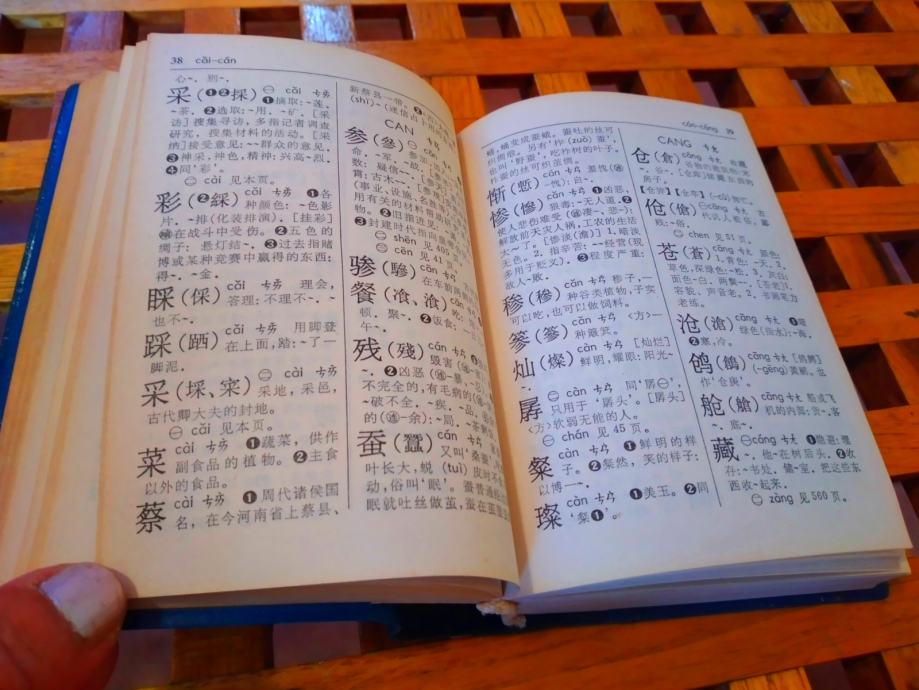 38 cǎi-cán
心~。别~。
采(❶❷採) ㊀ cǎi ㄘㄞˇ
❶摘取:~莲、
~茶。❷选取:~用、~矿。[采
访]搜集寻求,多指记者调查
研究,搜集材料的活动。[采
纳]接受意见:~~群众的意见。
❸神采,神色,精神:兴高~烈。
❹同‘彩’。
㊁ cài 见本页。
彩(❷綵) cǎi ㄘㄞˇ ❶各
种颜色:~色影
片、~排(化装排演)。[挂彩]
在战斗中受伤。❷五色的
绸子:悬灯结~。❸过去指赌
博或某种竞赛中赢得的东西:
得~、~金。
睬(保) cǎi ㄘㄞˇ 理会,
答理:不理不~、
~也不~。
踩(跴) cǎi ㄘㄞˇ 用脚登
在上面,踏:~了一
脚泥。
采(埰、寀) ㊁ cài ㄘㄞˋ
采地,采邑,
古代卿大夫的封地。
㊀ 见本页。
菜 cài ㄘㄞˋ ❶蔬菜,供作
副食品的植物。❷主食
以外的食品。
蔡 cài ㄘㄞˋ ❶周代诸侯国
名,在今河南省上蔡县、
新蔡县一带。
CAN
参(參)
㊁ shēn 见 405 页。
㊂ cēn 见 41 页。
骖(驂) cān ㄘㄢ
餐(飡、湌) cān
残(殘) cán ㄘㄢˊ
毁害
不完全的,有毛病的
~破不全、~疾、~品、
的(㊟一余):
蚕(蠶) cán ㄘㄢˊ
又叫‘桑蚕’
叶长大,蜕(tuì)皮时不
动,俗叫‘眠’。
眠就吐丝做茧,蚕在茧里
cán-cāng 39
蛹,蛹变成蚕蛾。蚕吐的丝可
织绸缎。另有‘柞(zuò)蚕’,
也叫‘野蚕’,吃柞树的叶子。
柞蚕的丝可织茧绸。
惭(慙) cán ㄘㄢˊ 羞愧
惨(慘) cǎn ㄘㄢˇ ❶凶恶,
狠毒:~无人道。❷
使人悲伤难受(㊟凄~、悲~):
解放前天灾人祸,工农的生活
太~了。[惨淡(澹)]1.暗淡
无色。2.指辛苦:~~经营(现
多用于贬义)。❸程度严重:
敌人~败。
穇(穇) cǎn ㄘㄢˇ 穇子,一
种谷类植物,子实
可以吃,也可以做饲料。
篸(篸) cǎn ㄘㄢˇ 〈方〉一
种簸箕。
灿(燦) càn ㄘㄢˋ [灿烂]
鲜明,耀眼:阳光~
孱 ㊁ càn ㄘㄢˋ 同‘孱㊀’,
只用于‘孱头’。[孱头]
〈方〉软弱无能的人。
㊀ chán 见 45 页。
粲 càn ㄘㄢˋ ❶鲜明的样
子。❷粲然,笑的样子:
以博一~。
璨 càn ㄘㄢˋ ❶美玉。❷同
‘粲❶’。
CANG ㄘㄤ
仓(倉) cāng ㄘㄤ 收藏
谷物的建筑物:米
~、谷~。[仓库]储藏东西的
房子。
[仓猝][仓卒](-cù)匆忙。
伧(傖) ㊀ cāng ㄘㄤ
古代讥人粗俗,
~俗。
㊁ chen 见 51 页。
苍(蒼) cāng ㄘㄤ
1.青色:~天。2.
草色,深绿色:~松。3.灰白:
面色~白、两鬓~~。[苍老]1.
容貌、声音老。2.书画笔力
老练。
沧(滄) cāng ㄘㄤ ❶暗
绿色(指水):~海。
❷寒,冷。
鸧(鶬) cāng ㄘㄤ [鸧鹒]
(-gēng)黄鹂。也
作‘仓庚’。
舱(艙) cāng ㄘㄤ 船或飞
机的内部:货~、客
~、底~。
藏 ㊀ cáng ㄘㄤˊ ❶隐避:埋
~、他~在树后头。❷收
存:~书处、储~室、把这些东
西收~起来。
㊁ zàng 见 560 页。